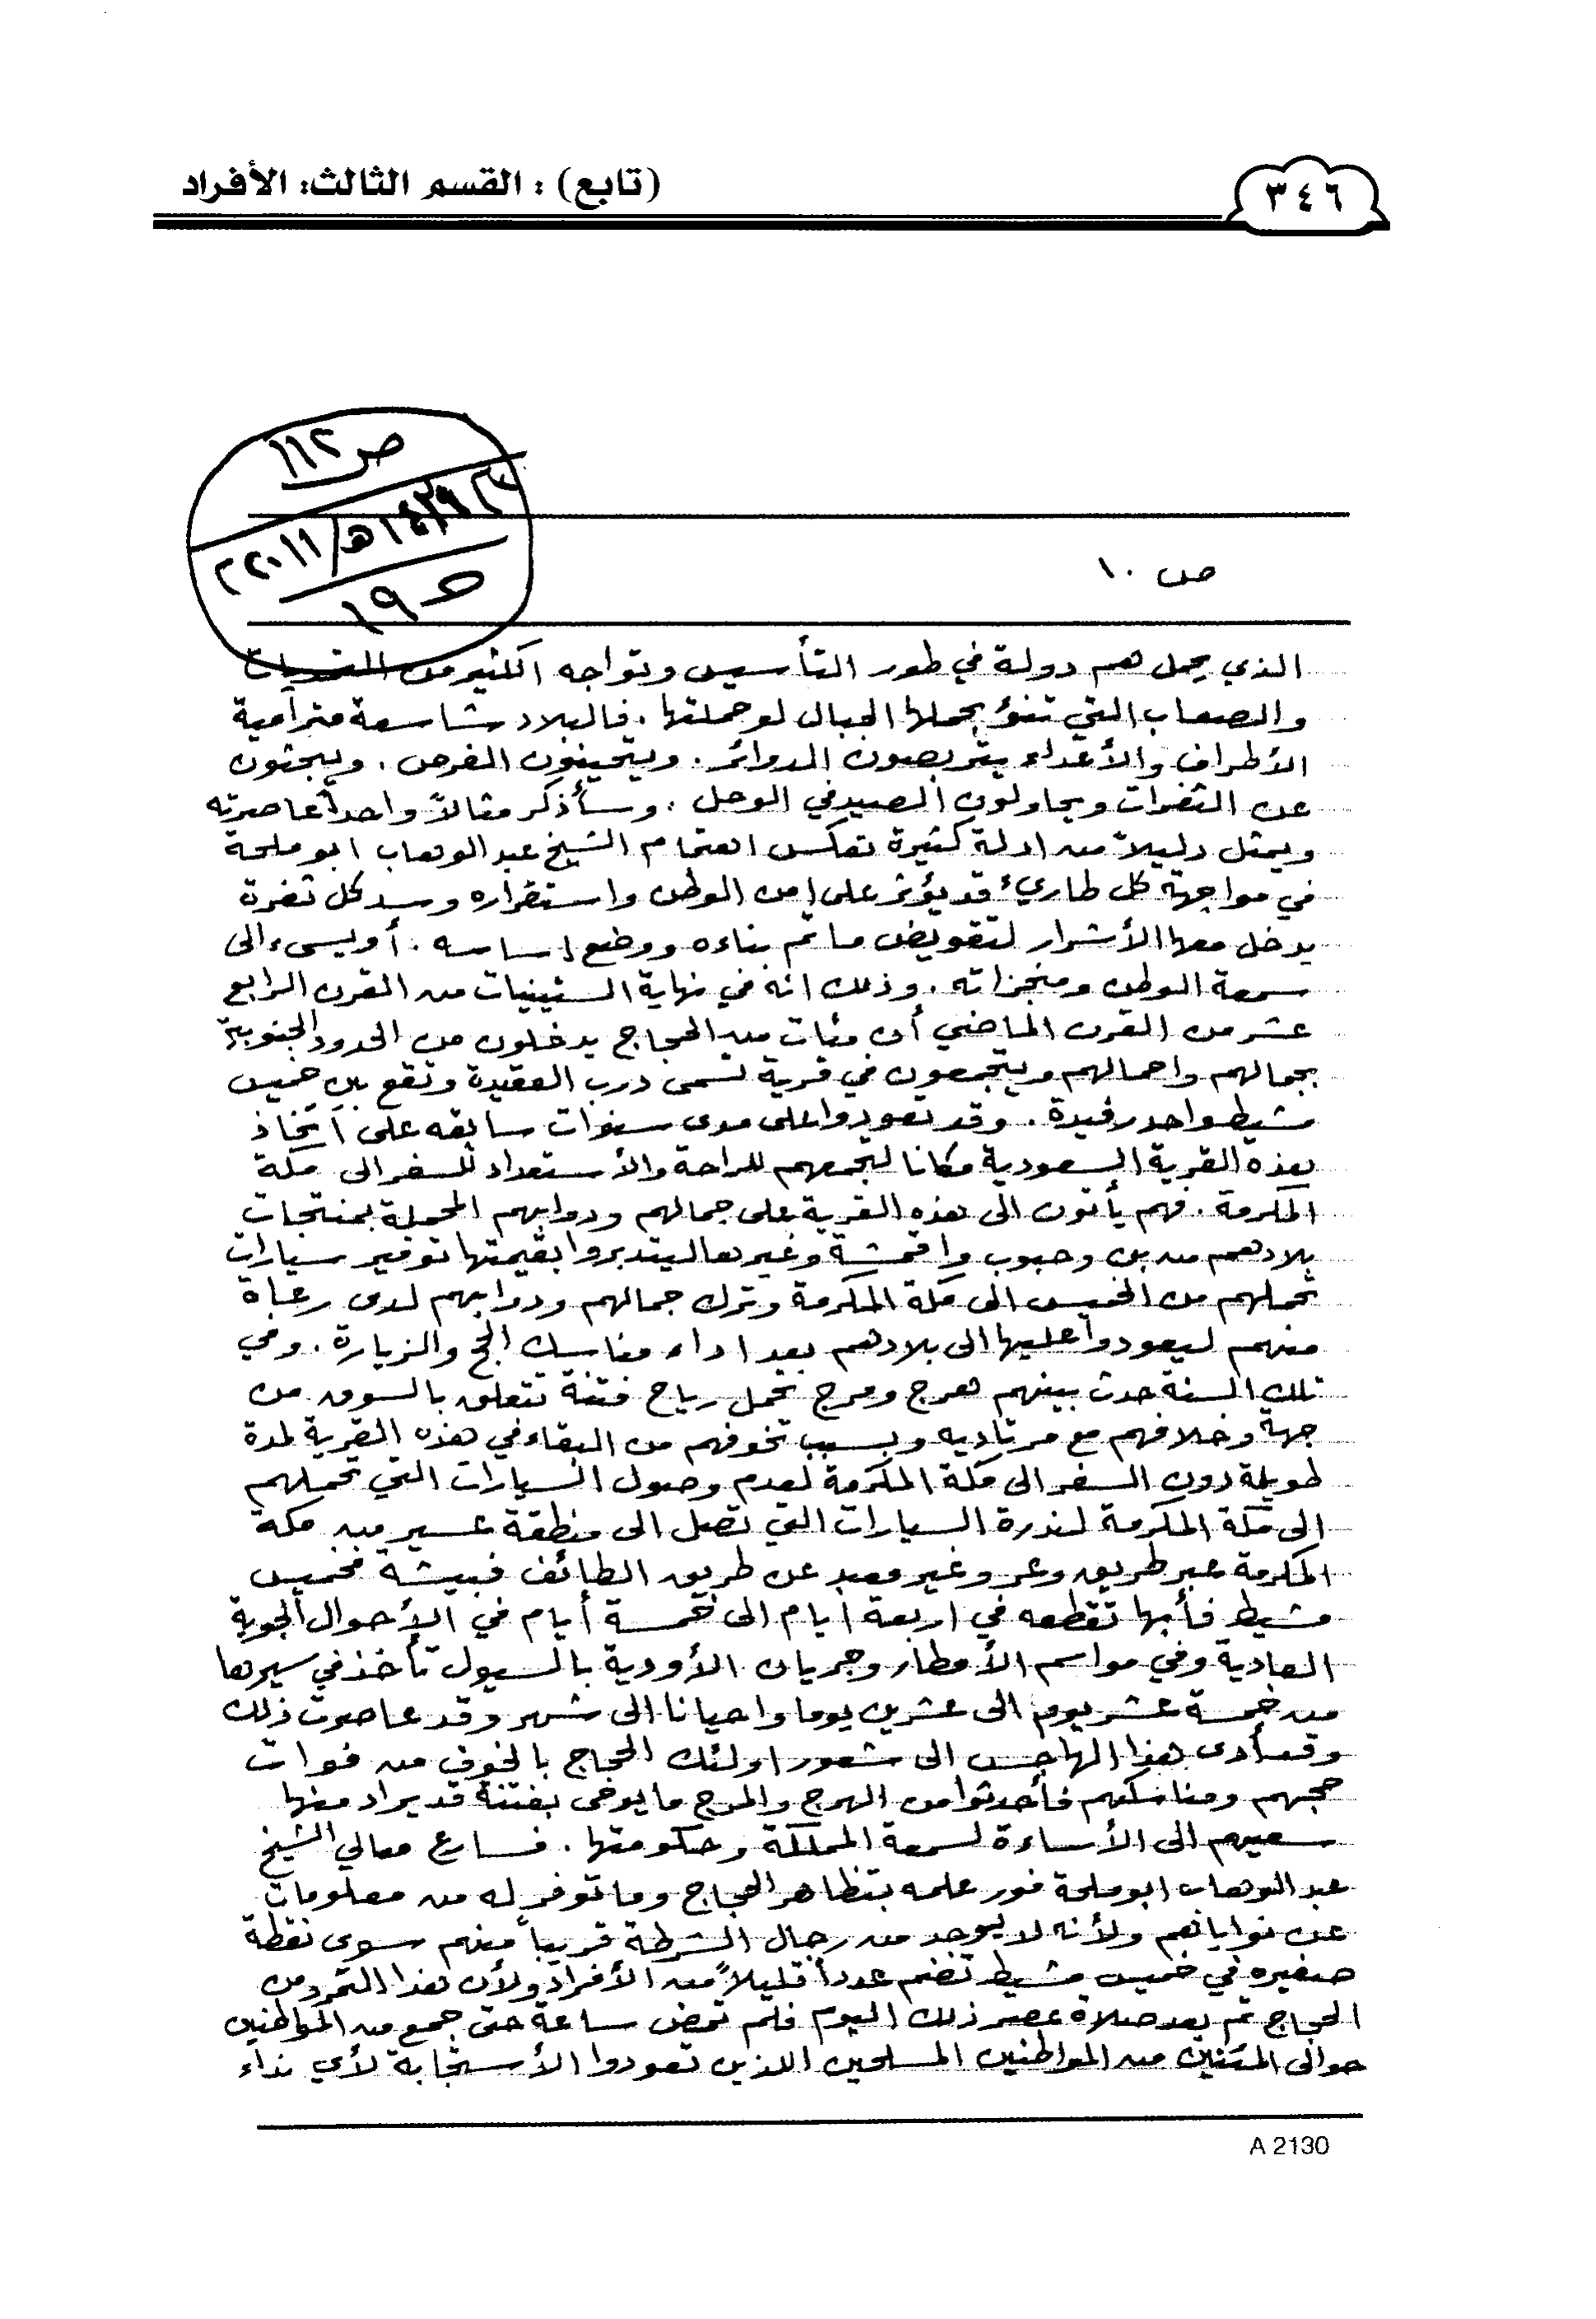 (تابع) : القسم الثالث: الأفراد
٣٤٦
ص ١١٢
١٤٢٩هـ/٢٢٠١١
ص ١٩
ص ١٠
الذي يحمل هم دولة في طور التأسيس وتواجه الكثير من التحديات
والصعاب التي تنؤ بحملها الجبال لو حملتها . فالبلاد شاسعة مترامية
الأطراف والأعداء يتربصون الدوائر . ويتحينون الفرص . ويبحثون
عن الثغرات ويحاولون الصيد في الوحل . وسأذكر مثالاً واحداً عاصرته
ويمثل دليلاً من ادلة كثيرة تعكس اهتمام الشيخ عبد الوهاب ابو ملحة
في مواجهة كل طاريء قد يؤثر على امن الوطن واستقراره وسد كل ثغرة
يدخل معها الأشرار لتقويض ما تم بناءه ووضع اساسه . أو يسيء الى
سمعة الوطن ومنجزاته . وذلك انه في نهاية الستينيات من القرن الرابع
عشر من القرن الماضي أن مئات من الحجاج يدخلون من الحدود الجنوبية
بجمالهم واحمالهم ويتجمعون في قرية تسمى درب العقيدة وتقع بين خميس
مشيط واحد رفيدة . وقد تعودوا على مدى سنوات سابقه على اتخاذ
هذه القرية السعودية مكانا لتجمعهم للراحة والأستعداد للسفر الى مكة
المكرمة . فهم يأتون الى هذه القرية على جمالهم ودوابهم المحملة بمنتجات
بلادهم من بن وحبوب واقمشة وغيرها ليتدبروا بقيمتها توفير سيارات
تحملهم من الخميس الى مكة المكرمة وترك جمالهم ودوابهم لدى رعاة
منهم ليعودوا عليها الى بلادهم بعد اداء مناسك الحج والزيارة . وفي
تلك السنة حدث بينهم هرج ومرج تحمل رياح فتنة تتعلق بالسوق من
جهة وخلافهم مع مرتاديه وبسبب تخوفهم من البقاء في هذه القرية لمدة
طويلة دون السفر الى مكة المكرمة لعدم وصول السيارات التي تحملهم
الى مكة المكرمة لندرة السيارات التي تصل الى منطقة عسير من مكة
المكرمة عبر طريق وعر وغير معبد عن طريق الطائف فبيشة فخميس
مشيط فأبها تقطعه في اربعة أيام الى خمسة أيام في الأحوال الجوية
العادية وفي مواسم الأمطار وجريان الأودية بالسيول تأخذ في سيرها
من خمسة عشر يوم الى عشرين يوما واحيانا الى شهر وقد عاصرت ذلك
وقد أدى هذا الهاجس الى شعور اولئك الحجاج بالخوف من فوات
حجهم ومناسكهم فأحدثوا من الهرج والمرج ما يوحى بفتنة قد يراد منها
سعيهم الى الأساءة لسمعة المملكة وحكومتها . فسارع معالي الشيخ
عبد الوهاب ابو ملحة فور علمه بتظاهر الحجاج وما توفر له من معلومات
عن نواياهم ولأنه لا يوجد من رجال الشرطة قريباً منهم سوى نقطة
صغيره في خميس مشيط تضم عدداً قليلاً من الأفراد ولأن هذا التمرد من
الحجاج تم بعد صلاة عصر ذلك اليوم فلم تمض ساعة حتى جمع من المواطنين
حوالى المئتين من المواطنين المسلحين اللذين تعودوا الأستجابة لأي نداء
A 2130